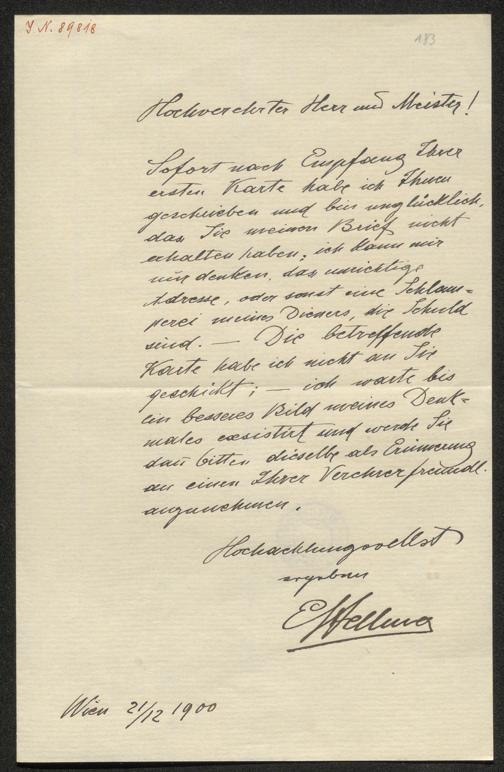 J. N. 89818
183
Hochverehrter Herr und Meister!
Sofort nach Empfang Ihrer
ersten Karte habe ich Ihnen
geschrieben und bin unglücklich,
das Sie meinen Brief nicht
erhalten haben; ich kann mir
nur denken, das unrichtige
Adresse, oder sonst eine Schlam=
perei meines Dieners, die Schuld
sind. — Die betreffende
Karte habe ich nicht an Sie
geschikt; — ich warte bis
ein besseres Bild meines Denk=
males exsistirt und werde Sie
dan̄ bitten dieselbe als Erinnerung
an einen Ihrer Verehrer freundl.
anzunehmen.
Hochachtungsvollst
ergeben
E Hellmer
Wien 21/12 1900